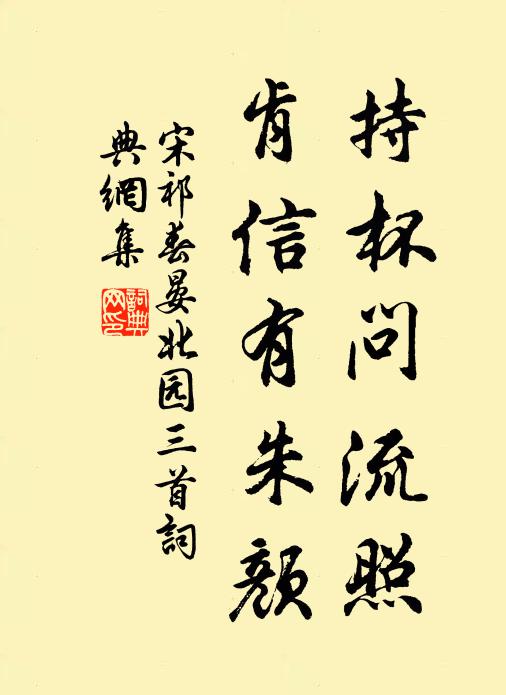 持杯问流照
肯信有朱颜
宋祁春晏北园三首詞
典網集
詞典
网印